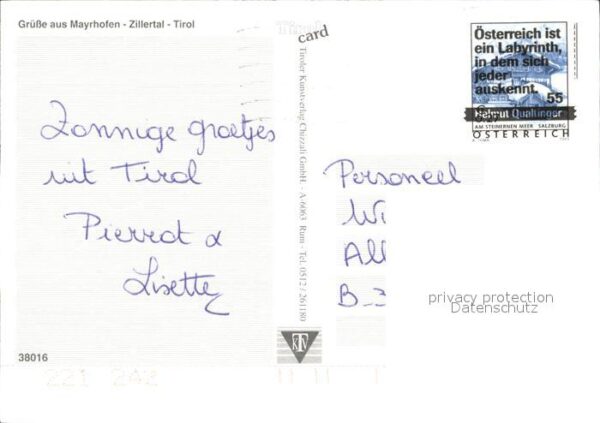 Grüße aus Mayrhofen - Zillertal - Tirol
Zonnige groetjes
uit Tirol
Pierrot &
Lisette
38016
221 242
Tirol
card
Tiroler Kunstverlag Chizzali GmbH. - A-6063 Rum - Tel. 0512 / 261180
KTV
Österreich ist
ein Labyrinth,
in dem sich
jeder
auskennt.
55
Helmut Qualtinger
AM STEINERNEN MEER SALZBURG
ÖSTERREICH
Personeel
Wi
All
B_3
privacy protection
Datenschutz